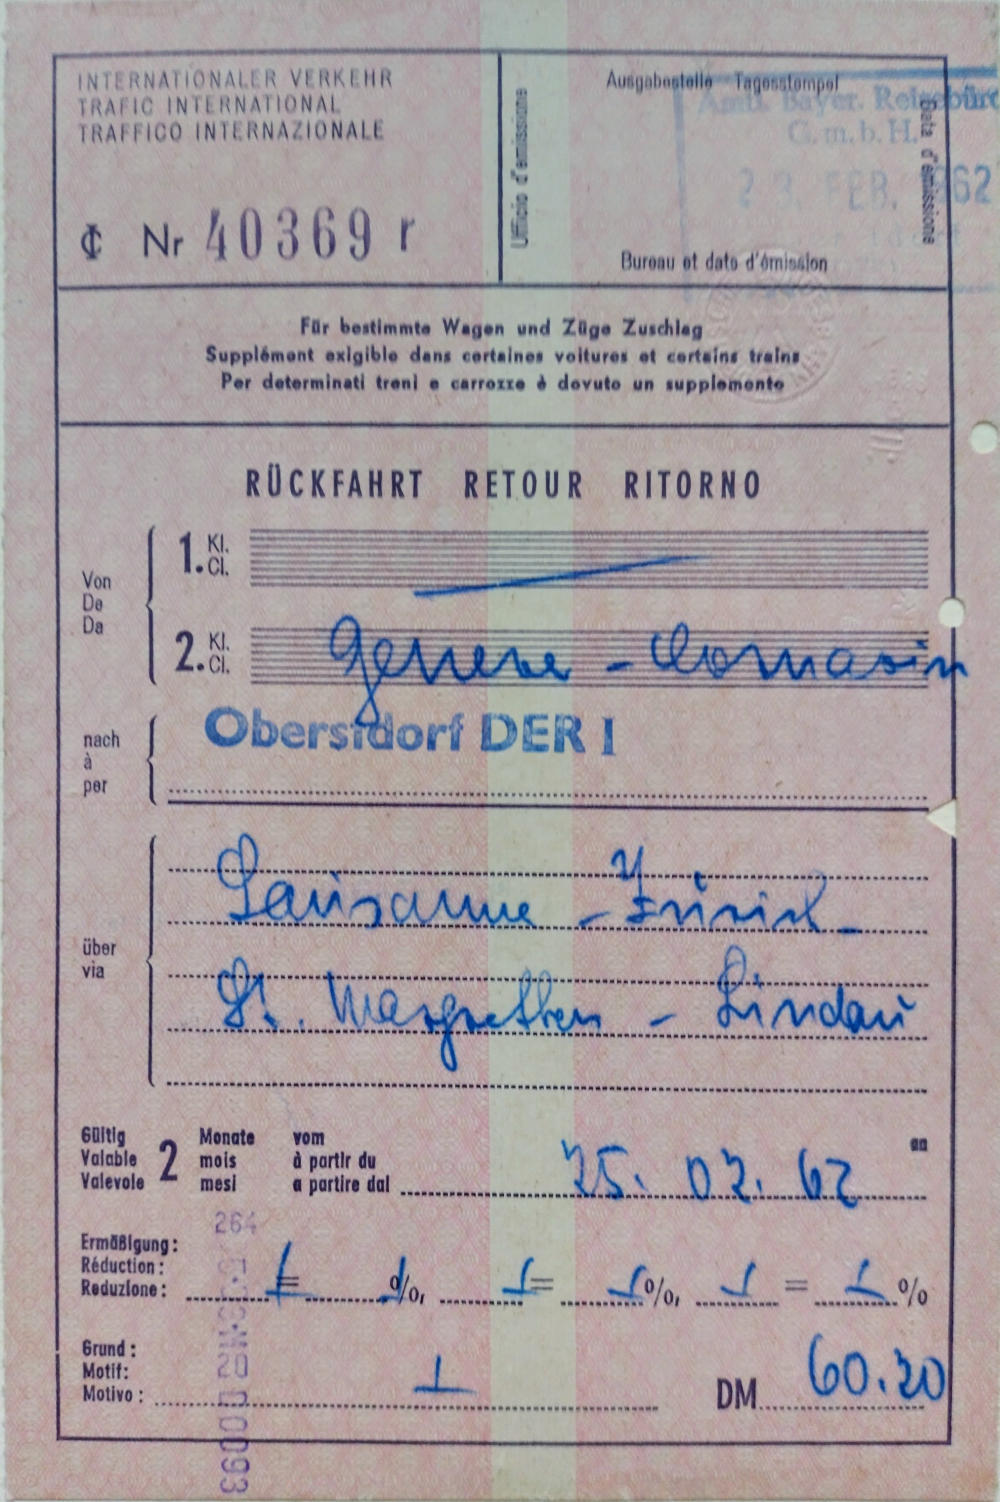 INTERNATIONALER VERKEHR
TRAFIC INTERNATIONAL
TRAFFICO INTERNAZIONALE
₵ Nr 40369 r
Ufficio d'emissione
Ausgabestelle Tagesstempel
Amtl. Bayer. Reisebüro
G.m.b.H.
23. FEB. 1962
Data d'emissione
Bureau et date d'émission
Für bestimmte Wagen und Züge Zuschlag
Supplément exigible dans certaines voitures et certains trains
Per determinati treni e carrozze è dovuto un supplemento
RÜCKFAHRT RETOUR RITORNO
Von
De
Da
1. Kl.
Cl.
2. Kl.
Cl.
Geneve - Cornavin
nach
à
per
Oberstdorf DER I
über
via
Lausanne - Zürich -
St. Margrethen - Lindau
Gültig 2 Monate vom
Valable mois à partir du
Valevole mesi a partire dal 25. 02. 62
264
Ermäßigung:
Réduction:
Reduzione: = %, = %, = %
Grund:
Motif:
Motivo:
DM 60.20